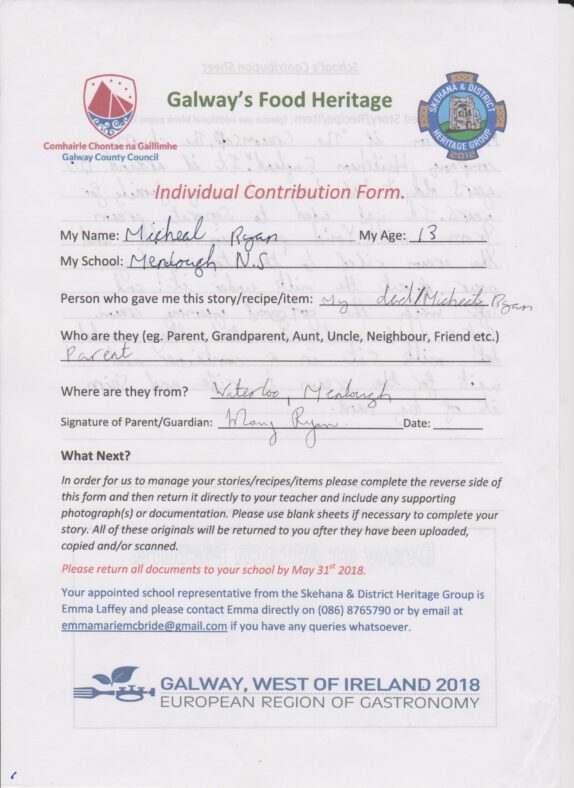 Galway's Food Heritage
SKEHANA & DISTRICT
HERITAGE GROUP
2012
Comhairle Chontae na Gaillimhe
Galway County Council
Individual Contribution Form.
My Name: Micheal Ryan My Age: 13
My School: Menlough N.S
Person who gave me this story/recipe/item: My dad/Micheál Ryan
Who are they (eg. Parent, Grandparent, Aunt, Uncle, Neighbour, Friend etc.)
Parent
Where are they from? Waterloo, Menlough
Signature of Parent/Guardian: Mary Ryan. Date:
What Next?
In order for us to manage your stories/recipes/items please complete the reverse side of
this form and then return it directly to your teacher and include any supporting
photograph(s) or documentation. Please use blank sheets if necessary to complete your
story. All of these originals will be returned to you after they have been uploaded,
copied and/or scanned.
Please return all documents to your school by May 31st 2018.
Your appointed school representative from the Skehana & District Heritage Group is
Emma Laffey and please contact Emma directly on (086) 8765790 or by email at
emmamariemcbride@gmail.com if you have any queries whatsoever.
GALWAY, WEST OF IRELAND 2018
EUROPEAN REGION OF GASTRONOMY